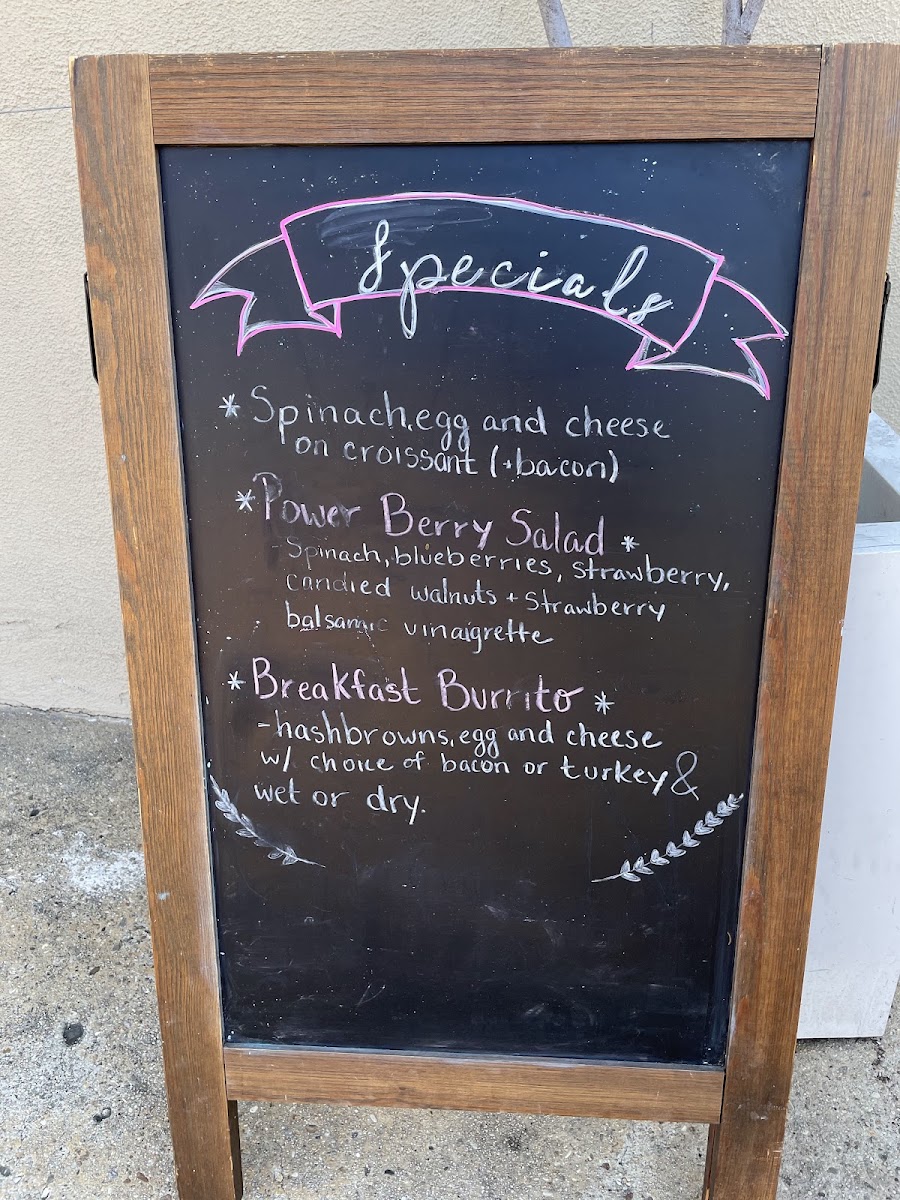 Specials
* Spinach, egg and cheese
on croissant (+bacon)
* Power Berry Salad *
- Spinach, blueberries, strawberry,
candied walnuts + strawberry
balsamic vinaigrette
* Breakfast Burrito *
- hashbrowns, egg and cheese
w/ choice of bacon or turkey &
wet or dry.